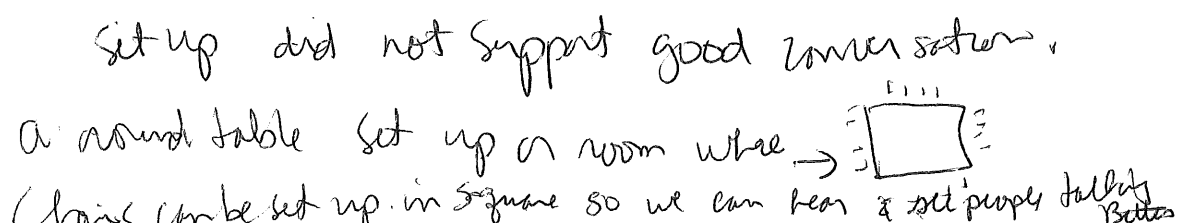 set up did not support good conversation.
a round table set up or room where →
Chairs can be set up in square so we can hear & see people talking
Better